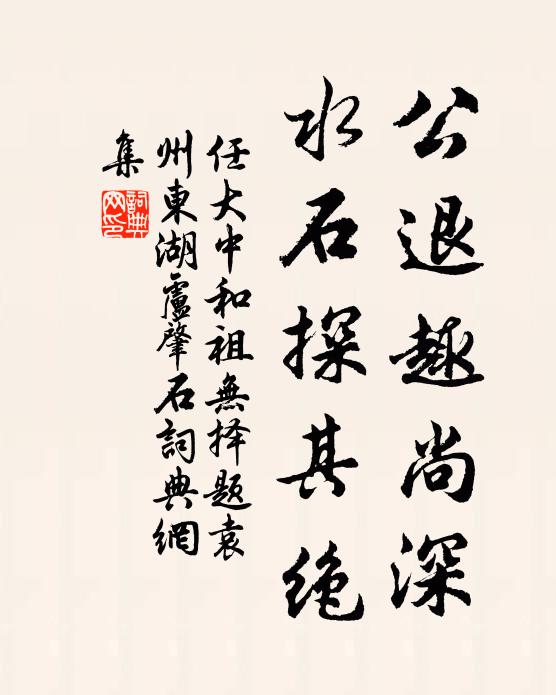 公退趣尚深
水石探其绝
任大中和祖無择题袁
州東湖盧肇石詞典網
集
詞典網印